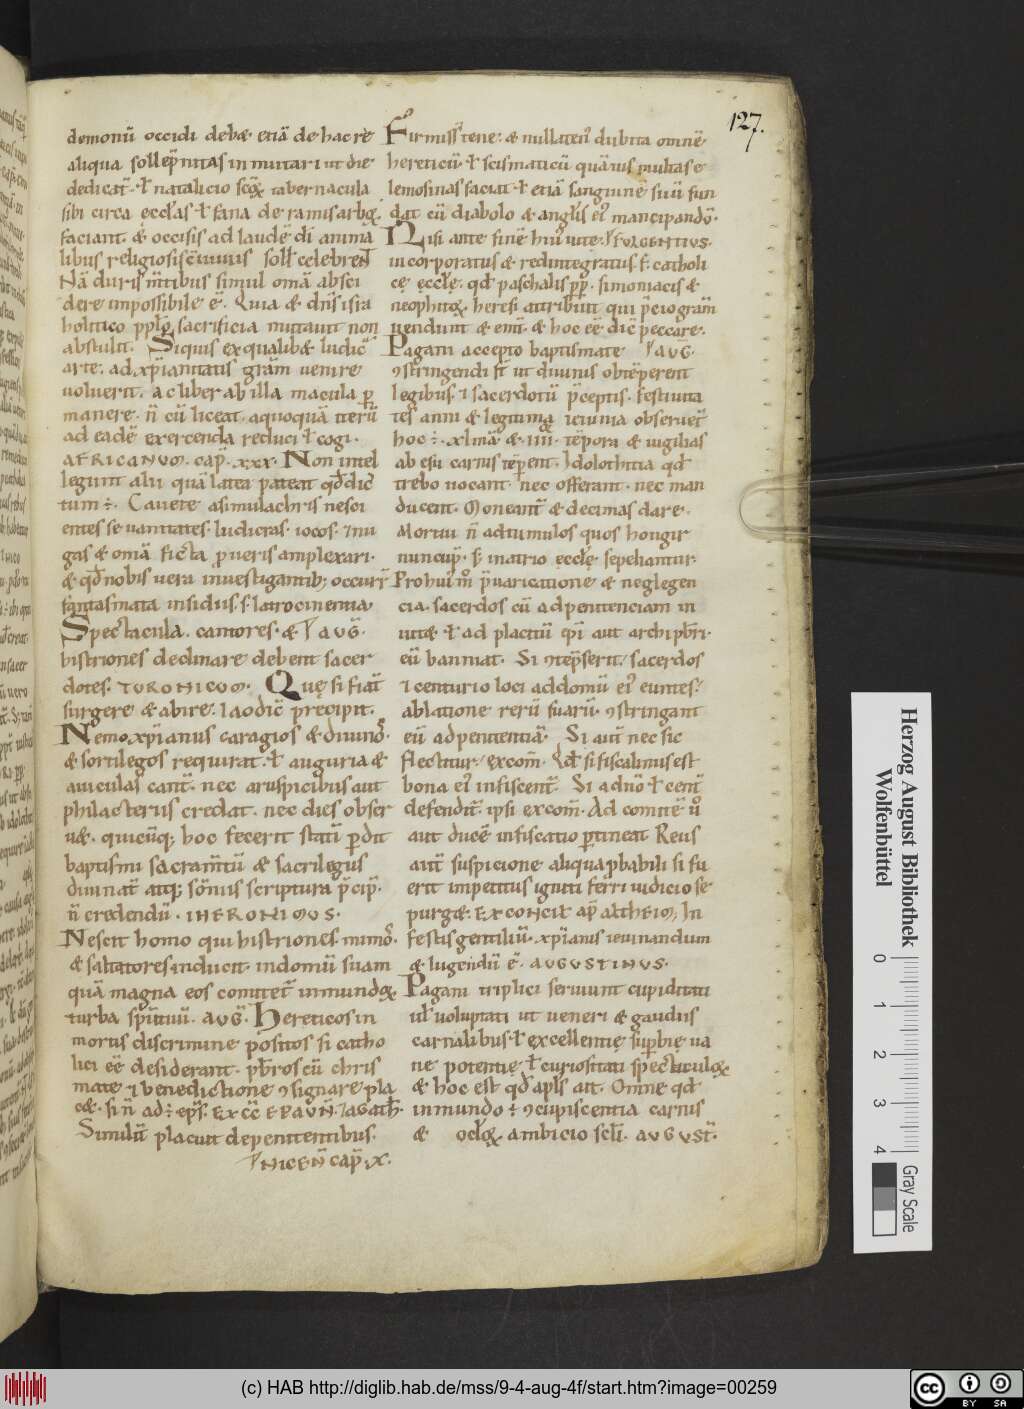 127.
demonū occidi debæ· etiā de hac re
aliqua sollēpnitas inmutari ut die
dedicat̄· ƚ natalicio sc̄oꝝ tabernacula
sibi circa eccl̄as ƚ fana de ramis arboꝝ
faciant· & occisis ad laudē dī anima
libus religiosis cōuiuiis soll̄ celebrent
Nā duris m̄tibus simul om̄a absci
dere impossibile ē· Quia & dn̄s isra
helitico pplō sacrificia mutauit non
abstulit· Siquis ex qualibæ ludic̄
arte· ad xp̄ianitatis grām uenire
uoluerit· ac liber ab illa macula ꝑ
manere· n̄ eū liceat· a quoquā iterū
ad eadē exercenda reduci ƚ cogi·
AFRICANUM· cap̄· xxx· Non intel
legunt alii quā latea pateat qđ dic̄
tum ÷· Cauete a simulachris nesci
entes se uanitates· ludicras· iocos· ⁊ nu
gas & om̄a ficta ꝓ ueris amplexari·
& qđ nobis uera inuestigantibꝫ occurr̄
fantasmata insidiis· s· latrocinentia
Spectacula· cantores· & AUḠ·
histriones declinare debent sacer
dotes· TURONICUM· Quę si fiat̄
surgere & abire· laodic̄ precipit·
Nemo xp̄ianus caragios & diuinos·
& sortilegos requirat· ƚ auguria &
auicula cant̄· nec aruspicibus aut
philacteriis credat· nec dies obser
uæ· quicūqꝫ hoc fecerit stati ꝑdit
baptismi sacram̄tū & sacrilegus
diuinat̄ atqꝫ sōniis scriptura p̄cip̄·
n̄ credendū· IHERONIMUS·
Nescit homo qui histriones mimos·
& saltatores inducit· in domū suam
quā magna eos comitet̄ inmundoꝝ
turba spirituū· AUḠ· Hereticos in
mortis discrimine positos si catho
lici eē desiderant· pbr̄os cū chris
mate ⁊ benedictione ꝯsignare pla
cæ· si n̄ ad ÷ ep̄s· Ex cc̄ EPAUN̄· ⁊ agath̄·
Similit̄ placuit de penitentibus·
NICEN̄ cap̄ ix·
Firmiss̄ tene: & nullaten̄ dubita omnē·
hereticū· ƚ scismaticū quāuis multas e
lemosinas faciat· ƚ etiā sanguinē suū fun
dat cū diabolo & angl̄is eī mancipandō·
Nisi ante finē huī uite· FULGENTIUS·
incorporatus & redintegratus f̄· catholi
cę ęccl̄ę· qđ paschalis pp̄· simoniacis &
neophitoꝝ heresi attribuit qui p̄cio gram̄
uendunt & em̄t· & hoc eē dic̄ peccare·
Pagani accepto baptismate AUḠ·
ꝯstringendi st̄ ut diuinis obtēperent
legibus· ⁊ sacerdotū p̄ceptis· Festiuita
tes anni & legitima ieiunia obseruet̄
hoc ÷· xlmā· & ·iiii· tēpora & uigilias
ab esu carnis tēperent· Idolothitia qđ
trebo uocant· nec offerant· nec man
ducent· Moneant̄ & decimas dare·
Mortui n̄ ad tumulos quos hougir
nuncup̄· s̄ in atrio ęcclę sepeliantur·
Prohui m̄ p̄uaricatione & neglegen
cia· sacerdos cū ad penitenciam in
uitæ· ƚ ad placitū ep̄i aut archipbr̄i·
eū banniat· Si ꝯtēpserit· sacerdos
⁊ centurio loci ad domū eī euntes·
ablatione rerū suarū· ꝯstringant
eū ad penitentiā· Si aut̄ nec sic
flectitur· excom̄· Qđ si fiscalinus est
bona eī infiscent̄· Si a dn̄o ƚ cent̄
defendit̄ ipsi excom̄· Ad comitē ū
aut ducē infiscatio ꝑtineat Reus
aut̄ suspicione aliqua ꝓbabili si fu
erit impetitus igniti ferri iudicio se
purgæ· EX CONCIL̄ ap̄ ALTHEIM· In
festis gentiliū· xp̄ianis ieiunandum
& lugendū ē· AUGUSTINUS·
Pagani triplici seruiunt cupiditati
ul̄ uoluptati ut ueneri & gaudiis
carnalibus· ƚ excellentię suꝑbię ua
ne potentię ƚ curiositati spectaculoꝝ
& hoc est qđ apl̄s ait· Omne qđ
in mundo ÷ ꝯcupiscentia carnis
& ocl̄oꝝ ambicio scl̄i· AUGUST̄·
Herzog August Bibliothek
Wolfenbüttel
0 1 2 3 4
Gray Scale
(c) HAB http://diglib.hab.de/mss/9-4-aug-4f/start.htm?image=00259
cc BY SA